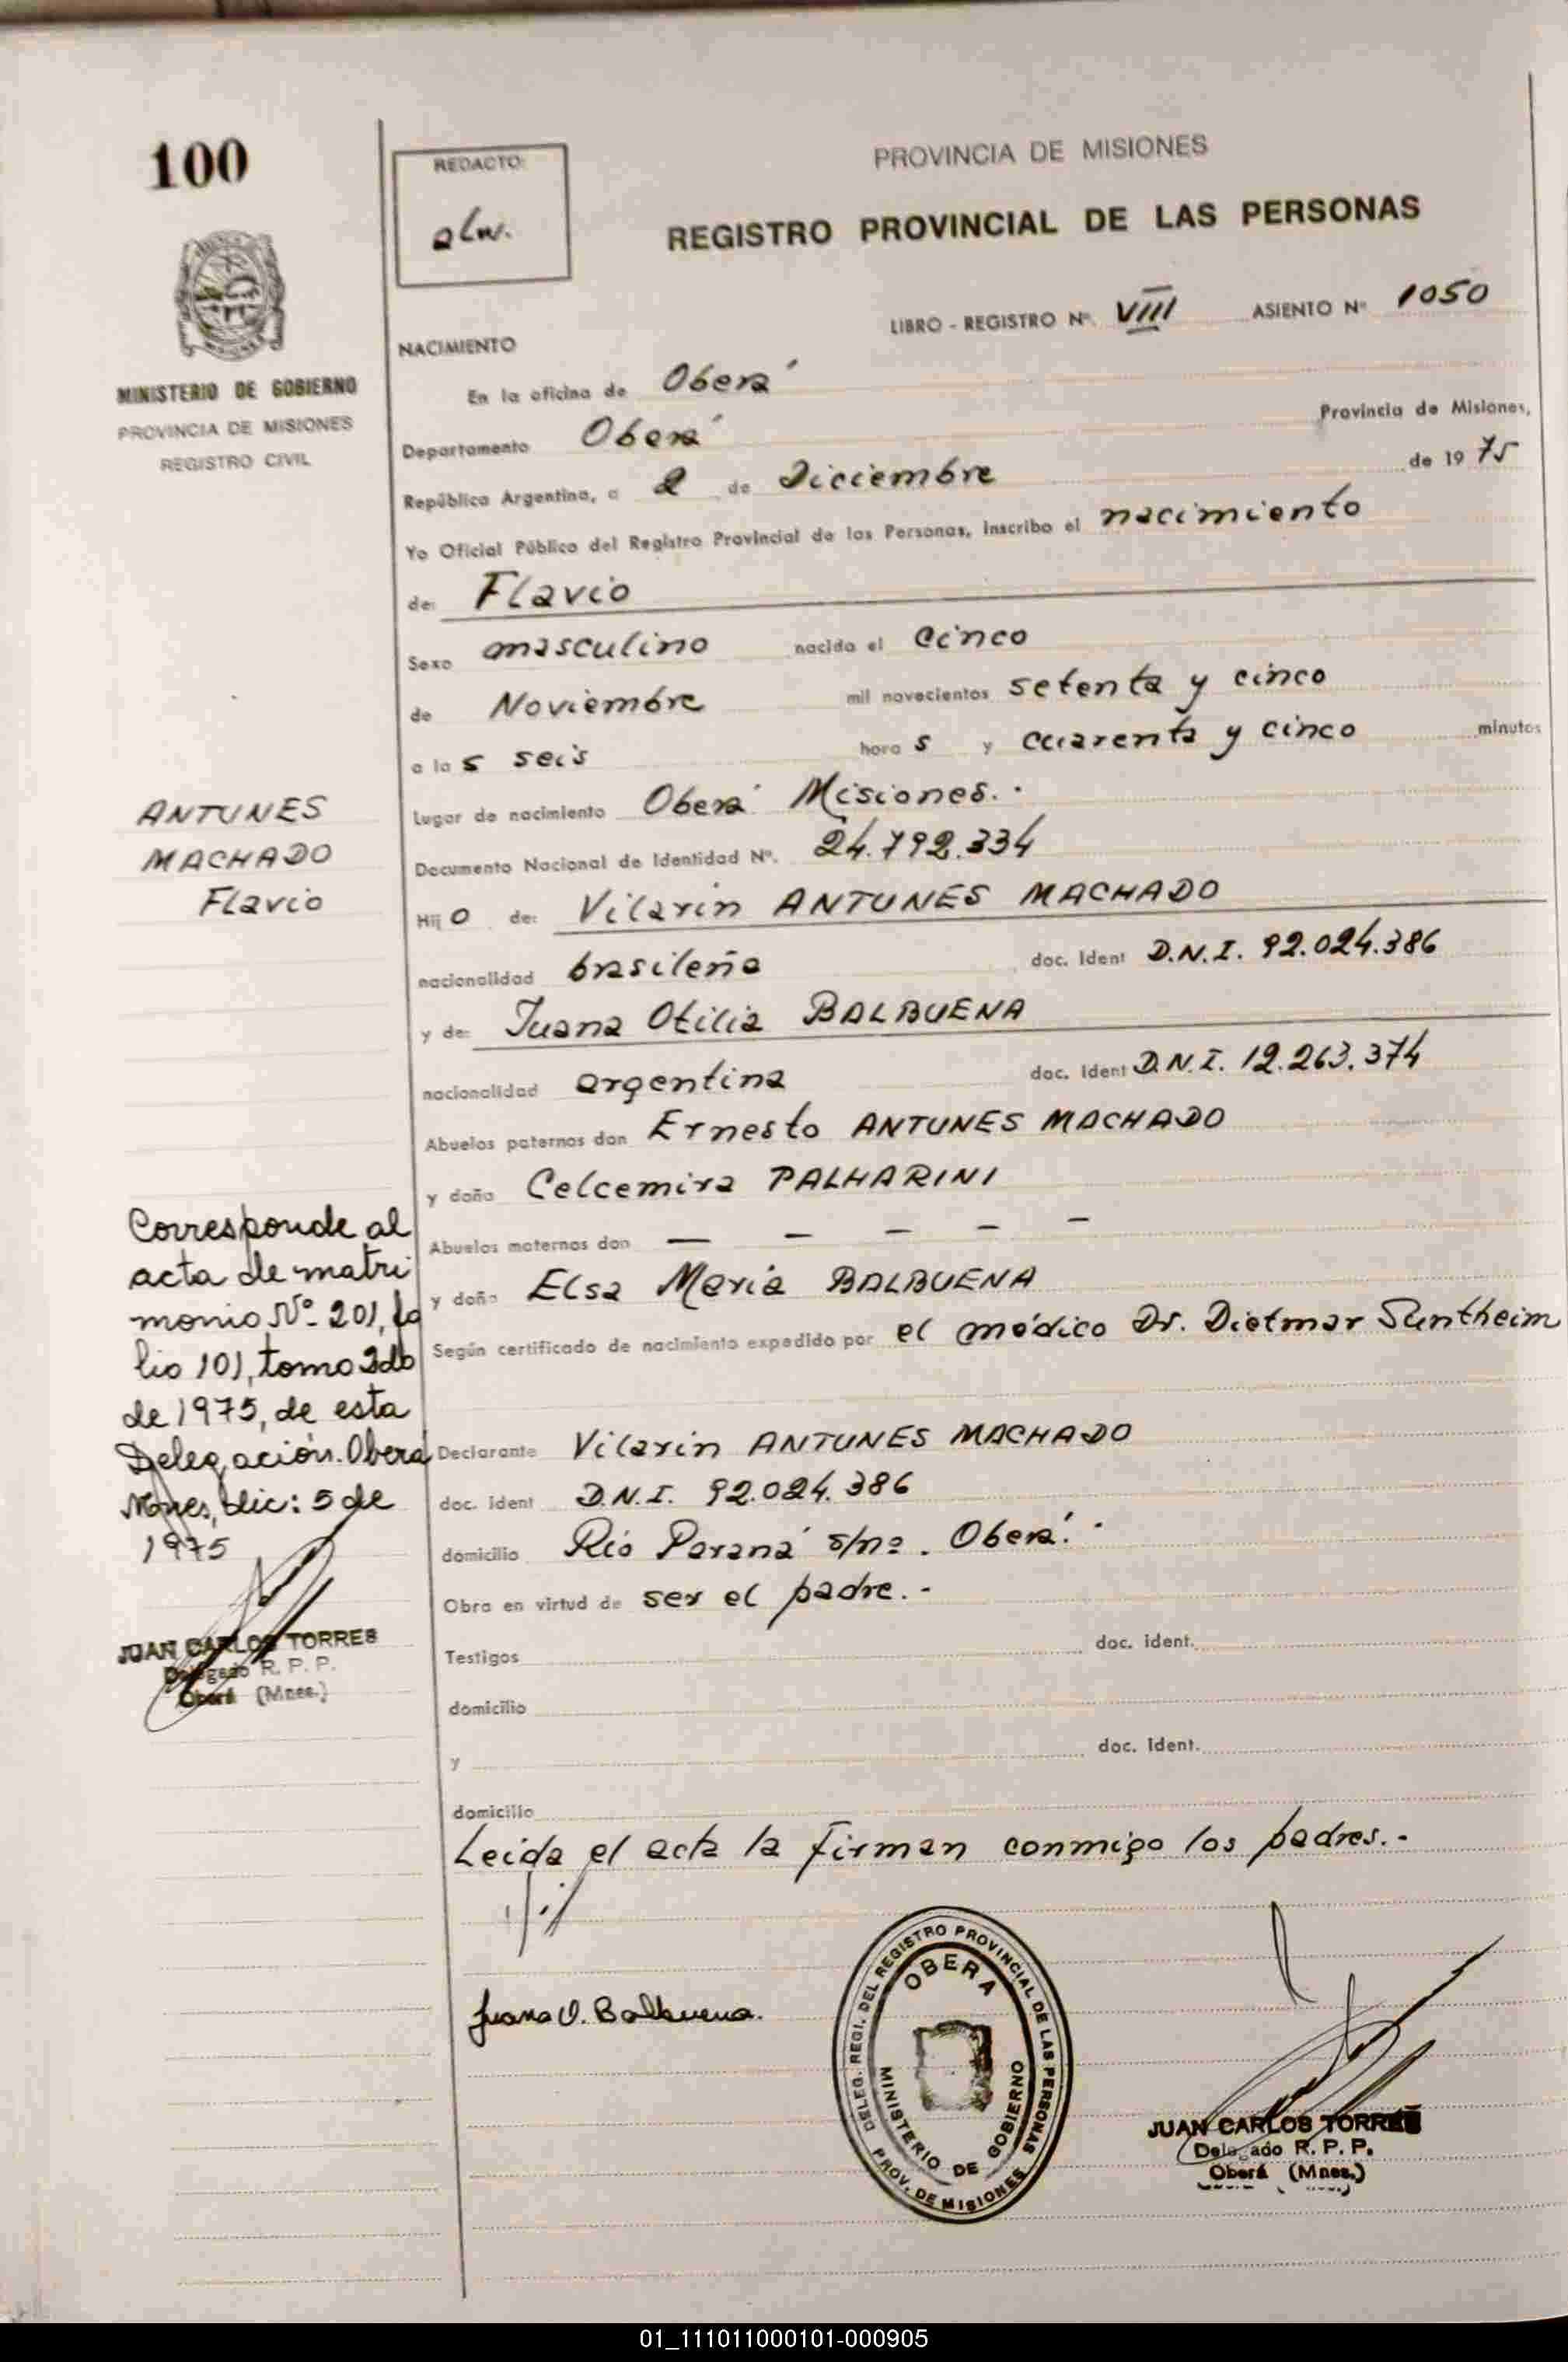 100
REDACTO:
alw.
PROVINCIA DE MISIONES
REGISTRO PROVINCIAL DE LAS PERSONAS
LIBRO - REGISTRO Nº. VIII ASIENTO Nº 1050
MINISTERIO DE GOBIERNO
PROVINCIA DE MISIONES
REGISTRO CIVIL
NACIMIENTO
En la oficina de Oberá
Departamento Oberá Provincia de Misiones,
República Argentina, a 2 de Diciembre de 19 75
Yo Oficial Público del Registro Provincial de las Personas, inscribo el nacimiento
de: Flavio
Sexo masculino nacido el cinco
de Noviembre mil novecientos setenta y cinco
a la s seis hora s y cuarenta y cinco minutos
Lugar de nacimiento Oberá Misiones.
Documento Nacional de Identidad Nº. 24.792.334
ANTUNES
MACHADO
Flavio
Hij o de: Vilarin ANTUNES MACHADO
nacionalidad brasileña doc. Ident D.N.I. 92.024.386
y de: Juana Otilia BALBUENA
nacionalidad argentina doc. Ident D.N.I. 12.263.374
Abuelos paternos don Ernesto ANTUNES MACHADO
y doña Celcemira PALHARINI
Abuelos maternos don — — — — —
y doña Elsa María BALBUENA
Según certificado de nacimiento expedido por el médico Dr. Dietmar Suntheim
Declarante Vilarin ANTUNES MACHADO
doc. ident D.N.I. 92.024.386
domicilio Río Paraná s/nº. Oberá.
Obra en virtud de ser el padre.-
Testigos doc. ident.
domicilio
y doc. ident.
domicilio
Leída el acta la firman conmigo los padres.-
Corresponde al
acta de matri
monio Nº 201, fo
lio 101, tomo 2do
de 1975, de esta
Delegación. Oberá
Mnes, dic: 5 de
1975
JUAN CARLOS TORRES
Delegado R. P. P.
Oberá (Mnes.)
Juana O. Balbuena.
DELEG. REGI. DEL REGISTRO PROVINCIAL DE LAS PERSONAS
OBERA
MINISTERIO DE GOBIERNO
PROV. DE MISIONES
JUAN CARLOS TORRES
Delegado R. P. P.
Oberá (Mnes.)
01_111011000101-000905